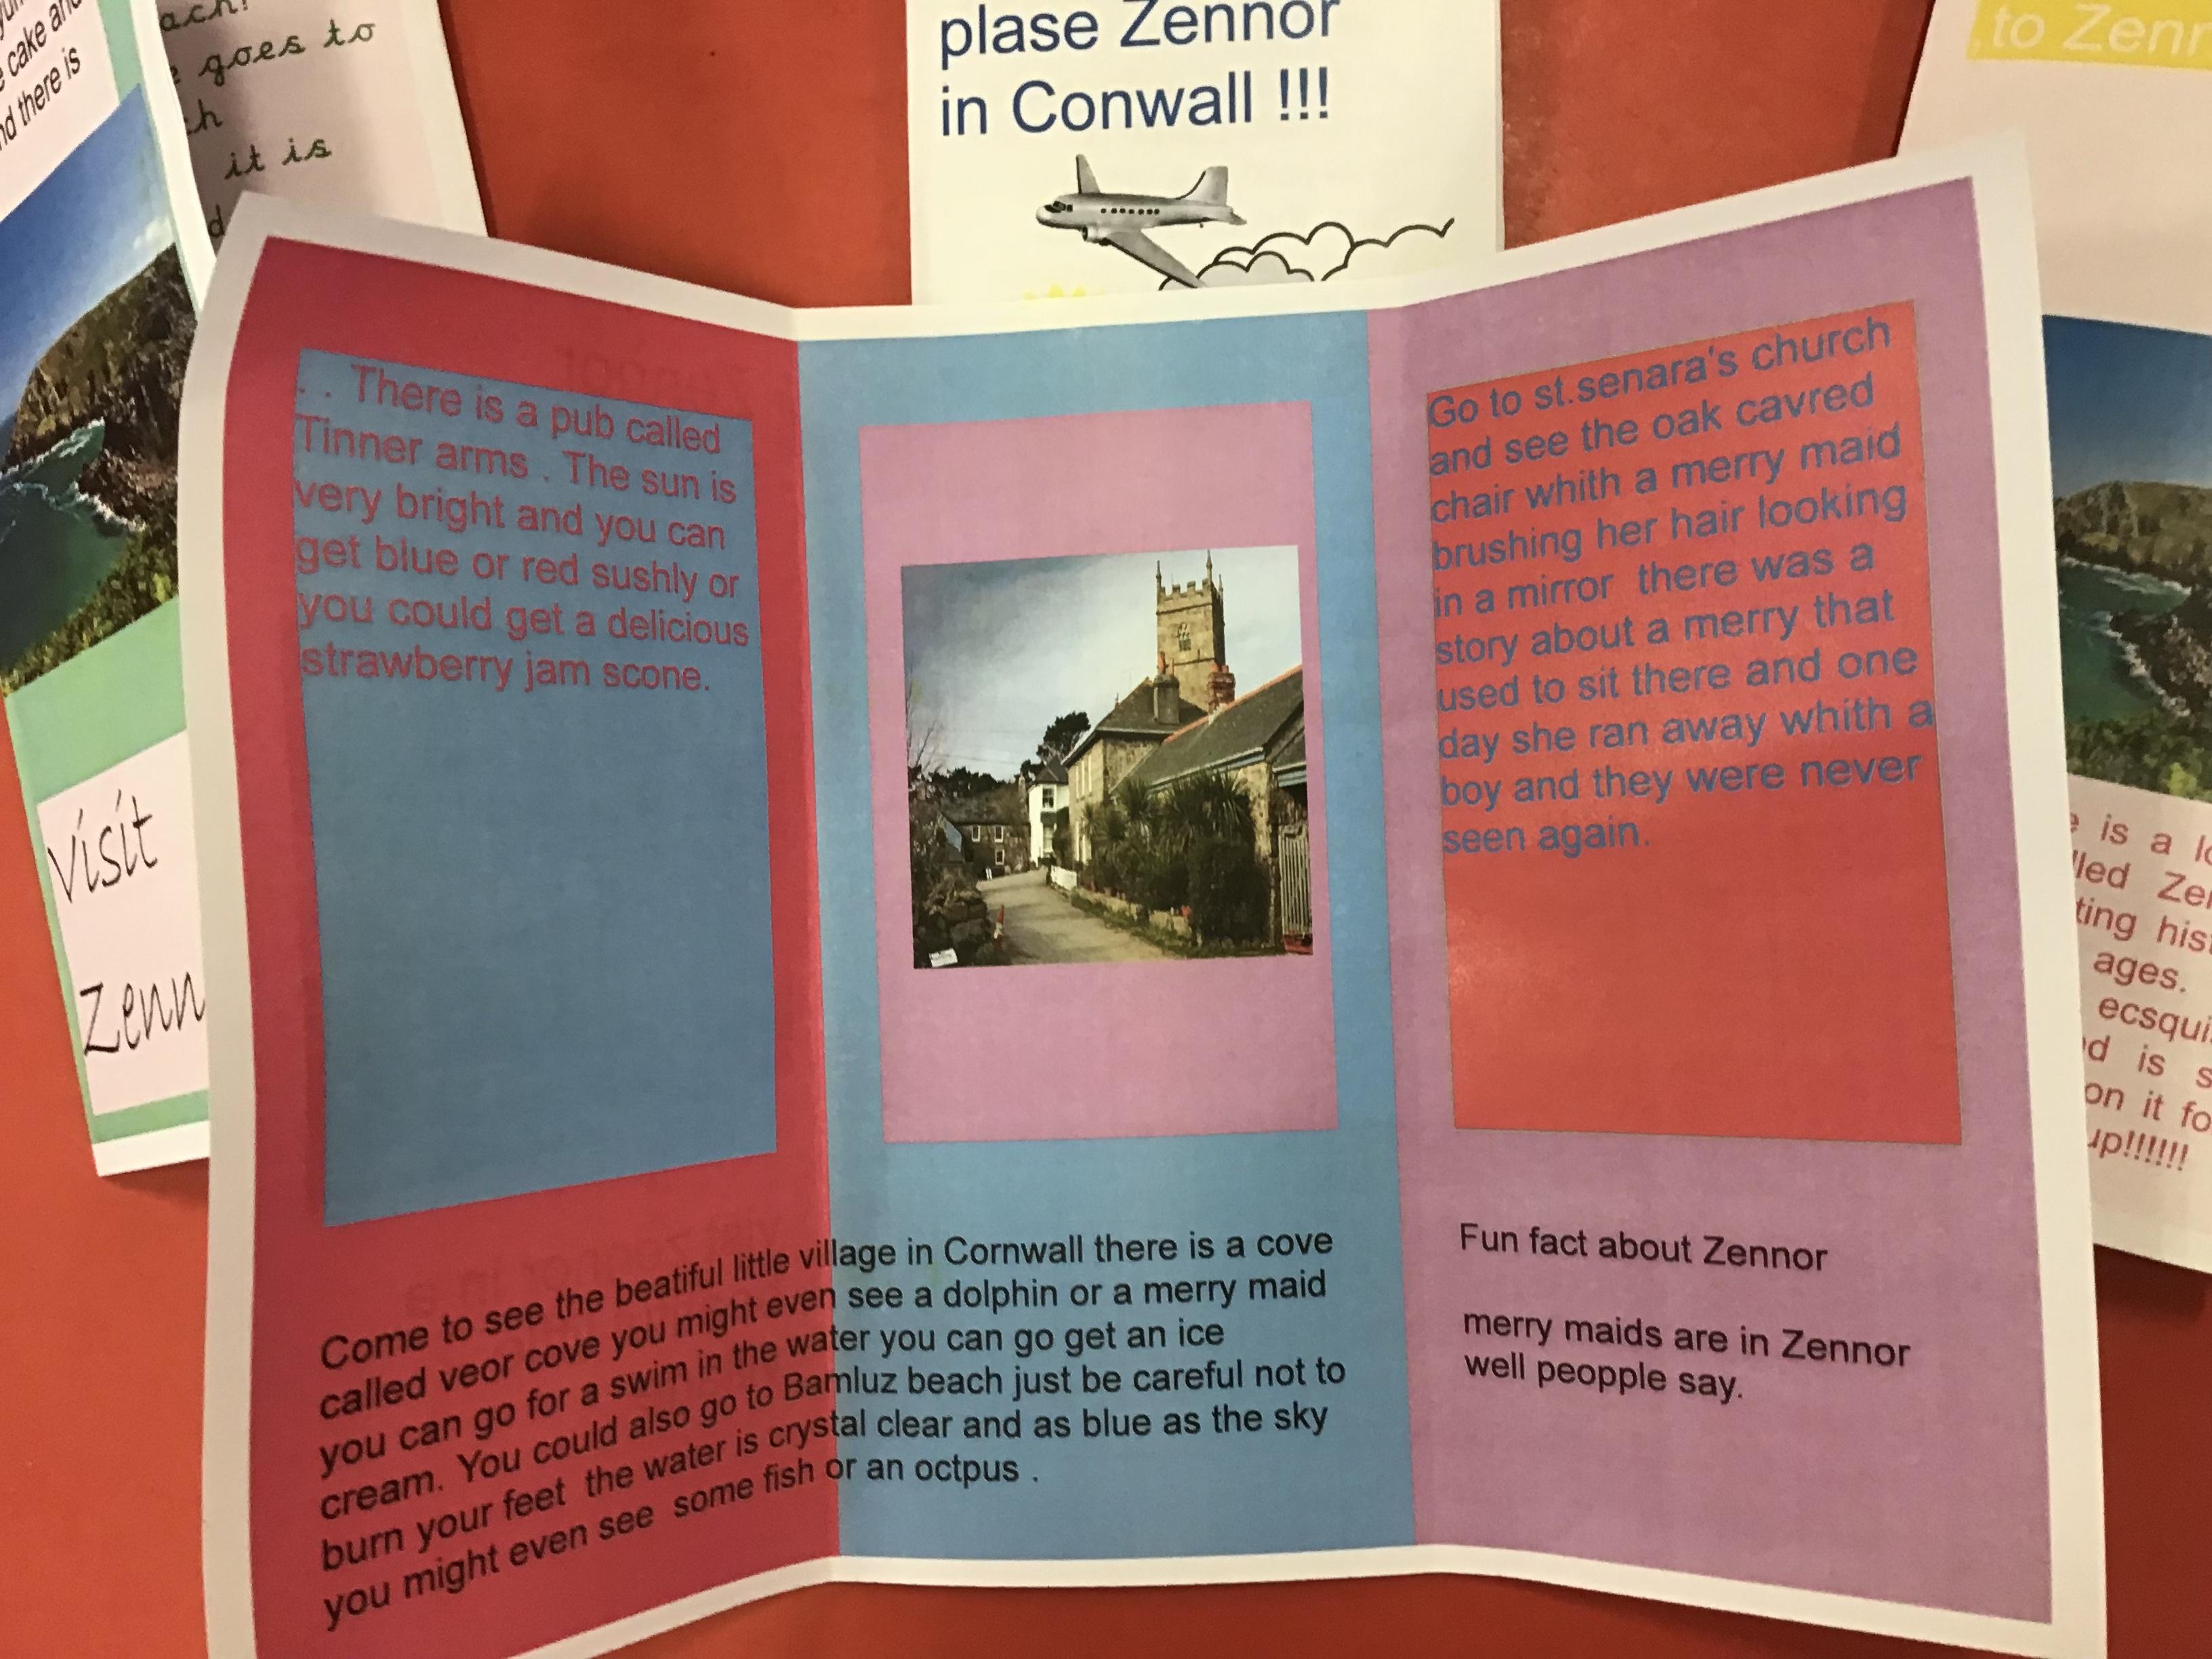 cake and
there is
goes to
it is
visit
plase Zennor
in Conwall !!!
to
. . There is a pub called
Tinner arms . The sun is
very bright and you can
get blue or red sushly or
you could get a delicious
strawberry jam scone.
Go to st.senara's church
and see the oak cavred
chair whith a merry maid
brushing her hair looking
in a mirror there was a
story about a merry that
used to sit there and one
day she ran away whith a
boy and they were never
seen again.
Come to see the beatiful little village in Cornwall there is a cove
called veor cove you might even see a dolphin or a merry maid
you can go for a swim in the water you can go get an ice
cream. You could also go to Bamluz beach just be careful not to
burn your feet the water is crystal clear and as blue as the sky
you might even see some fish or an octpus .
Fun fact about Zennor
merry maids are in Zennor
well peopple say.
is a
ages.
is
on it
up!!!!!!